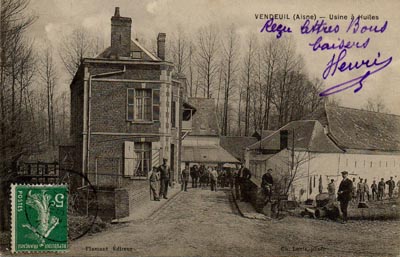 VENDEUIL (Aisne) – Usine à Huiles
Reçu lettres Bons
baisers
Henri
5c
Flamant Éditeur